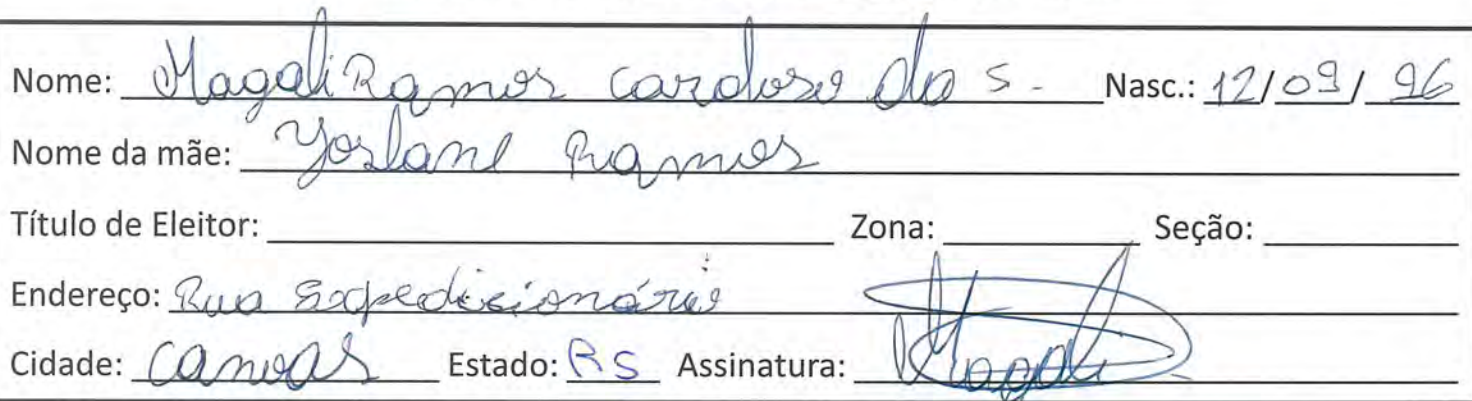 Nome: Magali Ramos Cardoso da S. Nasc.: 12/09/96
Nome da mãe: Joslane Ramos
Título de Eleitor: Zona: Seção:
Endereço: Rua Expedicionário
Cidade: Canoas Estado: RS Assinatura: Magali